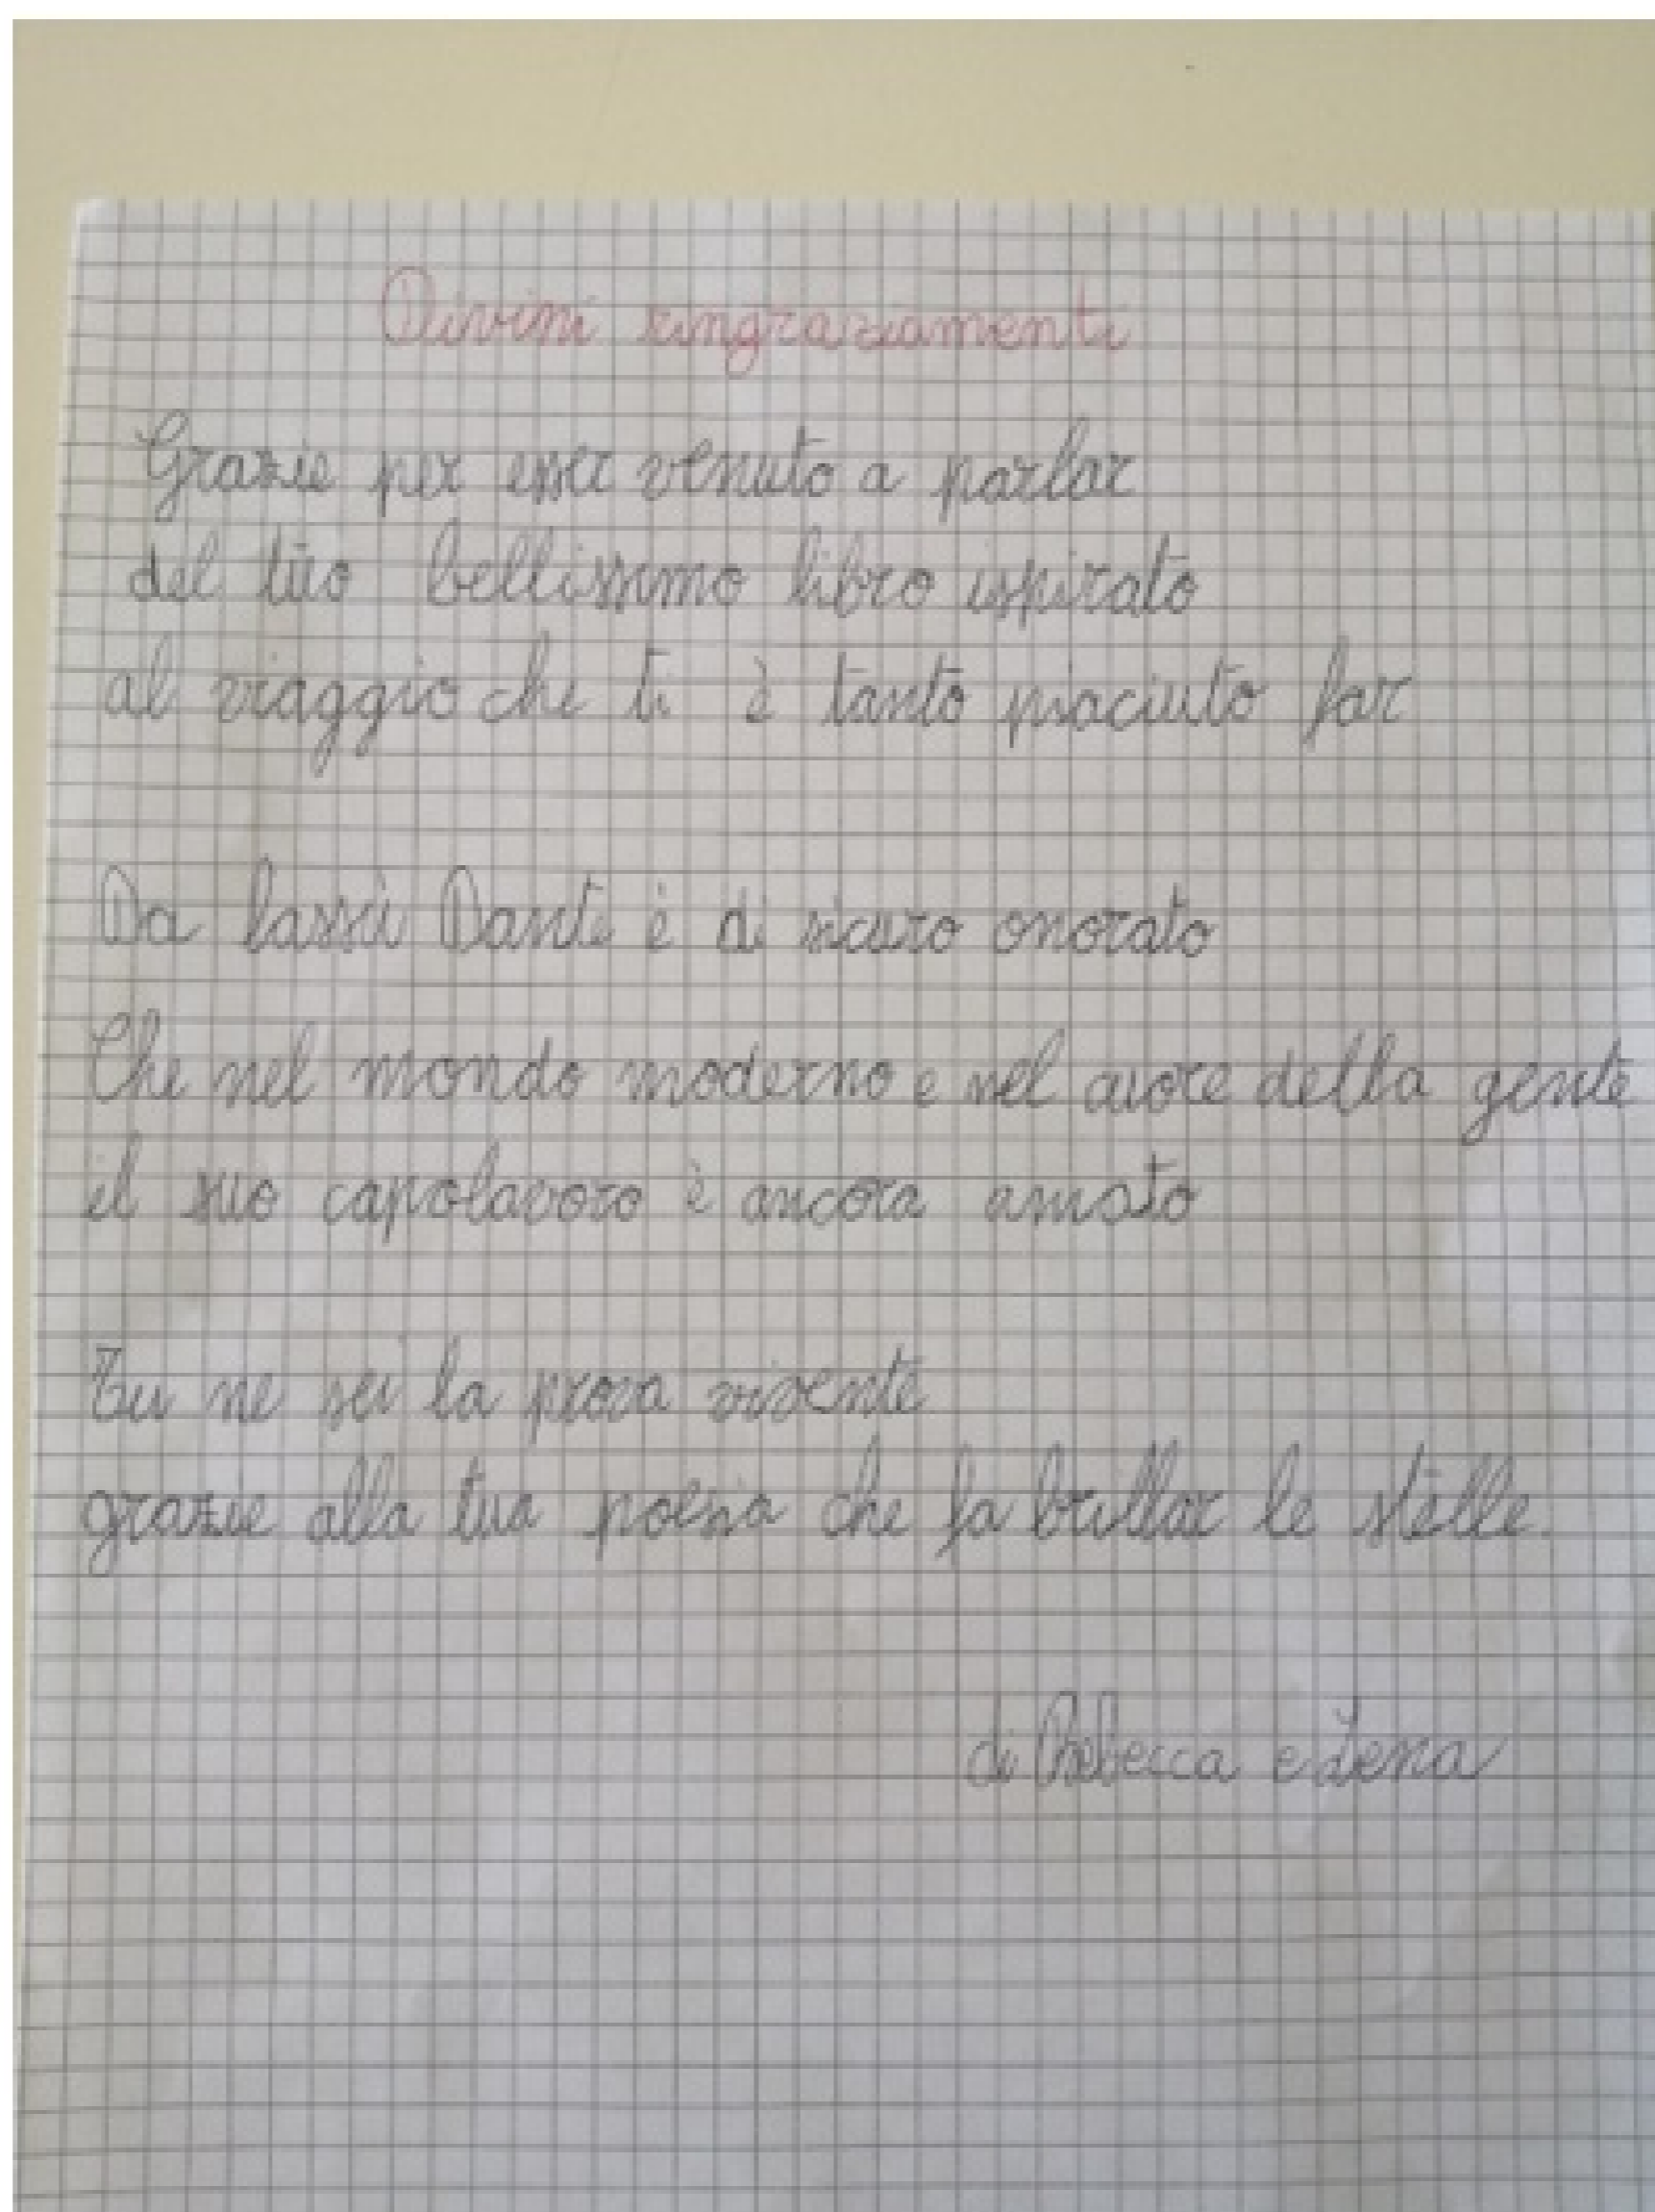 Divini ringraziamenti
Grazie per esser venuto a parlar
del tuo bellissimo libro ispirato
al viaggio che ti è tanto piaciuto far
Da lassù Dante è di sicuro onorato
Che nel mondo moderno e nel cuore della gente
il suo capolavoro è ancora amato
Tu ne sei la prova vivente
grazie alla tua poesia che fa brillar le stelle.
di Rebecca e